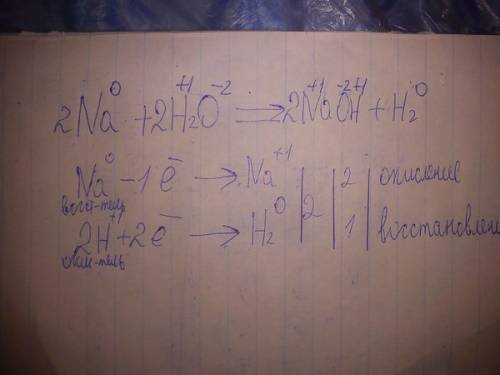 2Na⁰ + 2H₂⁺¹O⁻² ⟹ 2Na⁺¹O⁻²H⁺¹ + H₂⁰
Na⁰ − 1ē → Na⁺¹ | 2 | 2 | окисление
восст-тель
2H⁺¹ + 2ē → H₂⁰ | 1 | восстановлен
окис-тель